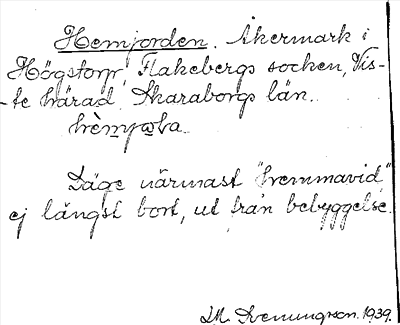 Hemjorden. Åkermark i
Högstorp, Flakebergs socken, Vis-
-te härad, Skaraborgs län.
Läge närmast "hemmavid"
ej längst bort, ut från bebyggelse.
1939.